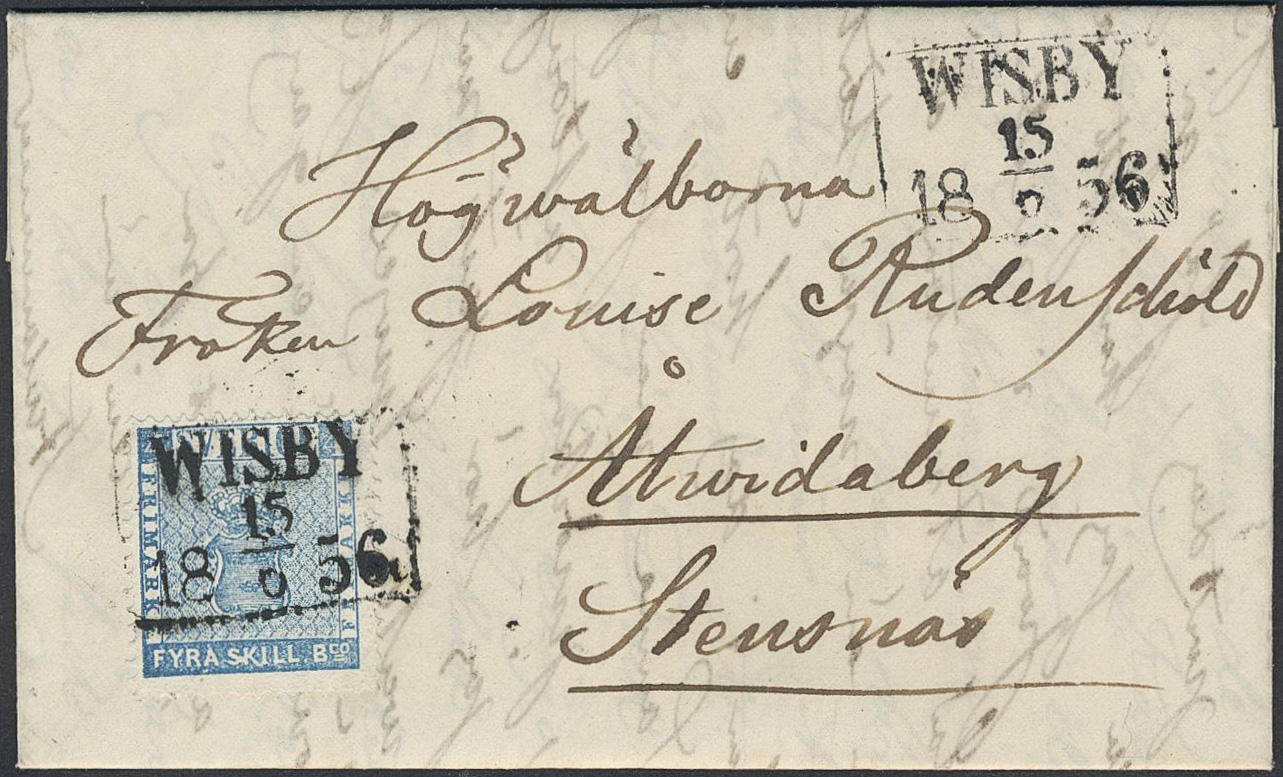 WISBY
15
18 9 56
Högwälborna
Fröken Louise Rudenschöld
å
Åtwidaberg
Stensnäs
WISBY
15
18 9 56
FRIMÄRKE
FRIMÄRKE
FYRA SKILL. Bco